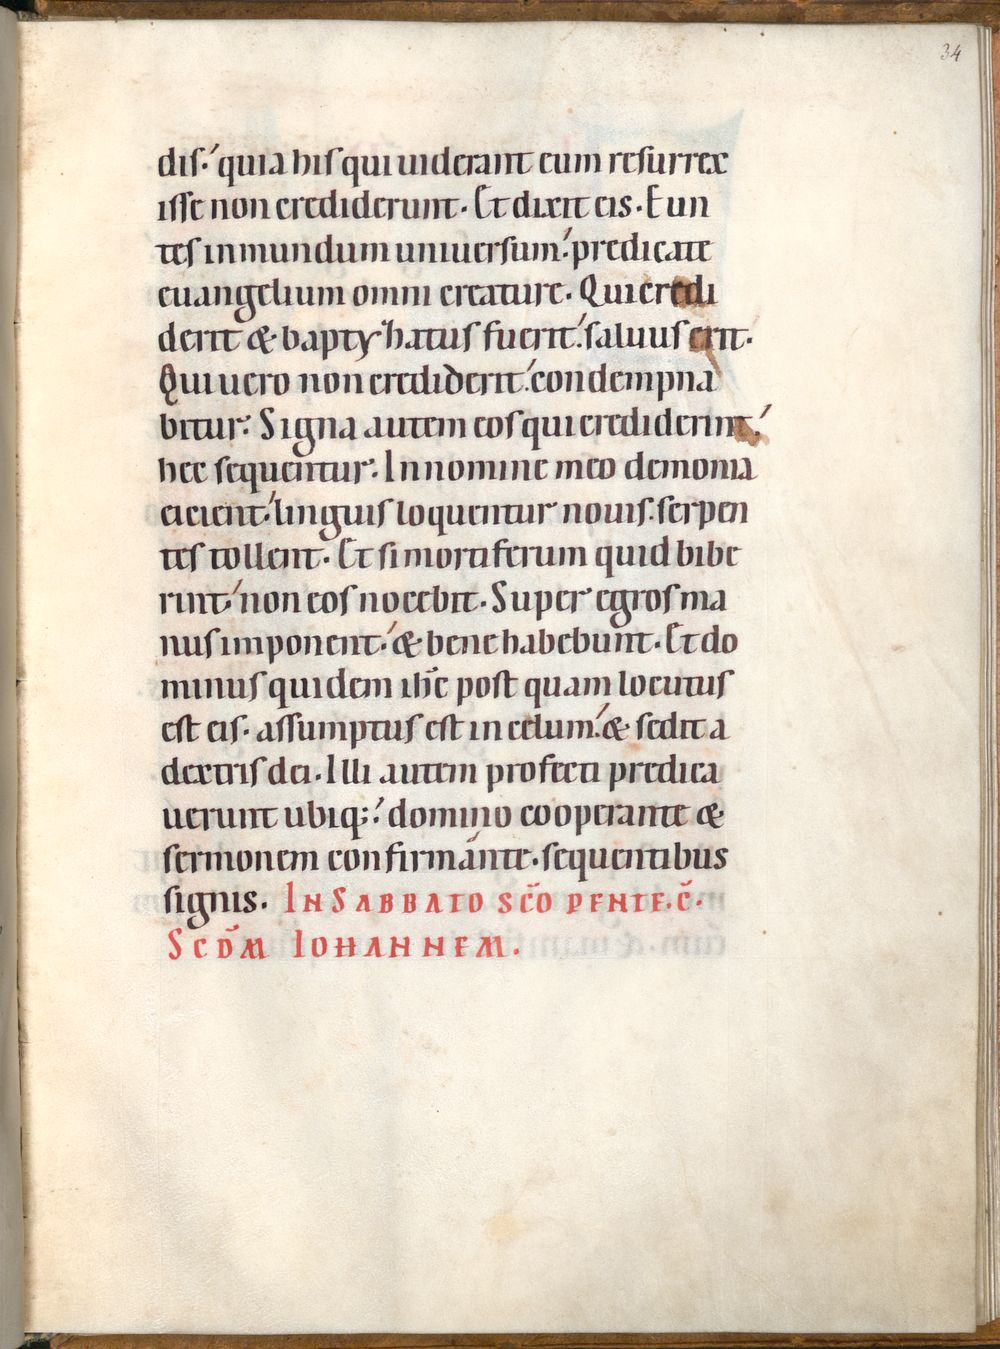 34
dis. quia his qui uiderant eum resurrex
isse non crediderunt. Et dixit eis. Eun
tes in mundum uniuersum. predicate
euangelium omni creature. Qui credi
derit & baptyzatus fuerit. saluus erit.
Qui uero non crediderit. condempna
bitur. Signa autem eos qui crediderint.
hec sequentur. In nomine meo demonia
eicient. linguis loquentur nouis. serpen
tes tollent. Et si mortiferum quid bibe
rint. non eos nocebit. Super egros ma
nus imponent. & bene habebunt. Et do
minus quidem ihc̄ post quam locutus
est eis. assumptus est in celum. & sedit a
dextris dei. Illi autem profecti predica
uerunt ubiq;. domino cooperante &
sermonem confirmante. sequentibus
signis. IN SABBATO SC̄O PENTE.C̄.
SCDM̄ IOHANNEM.